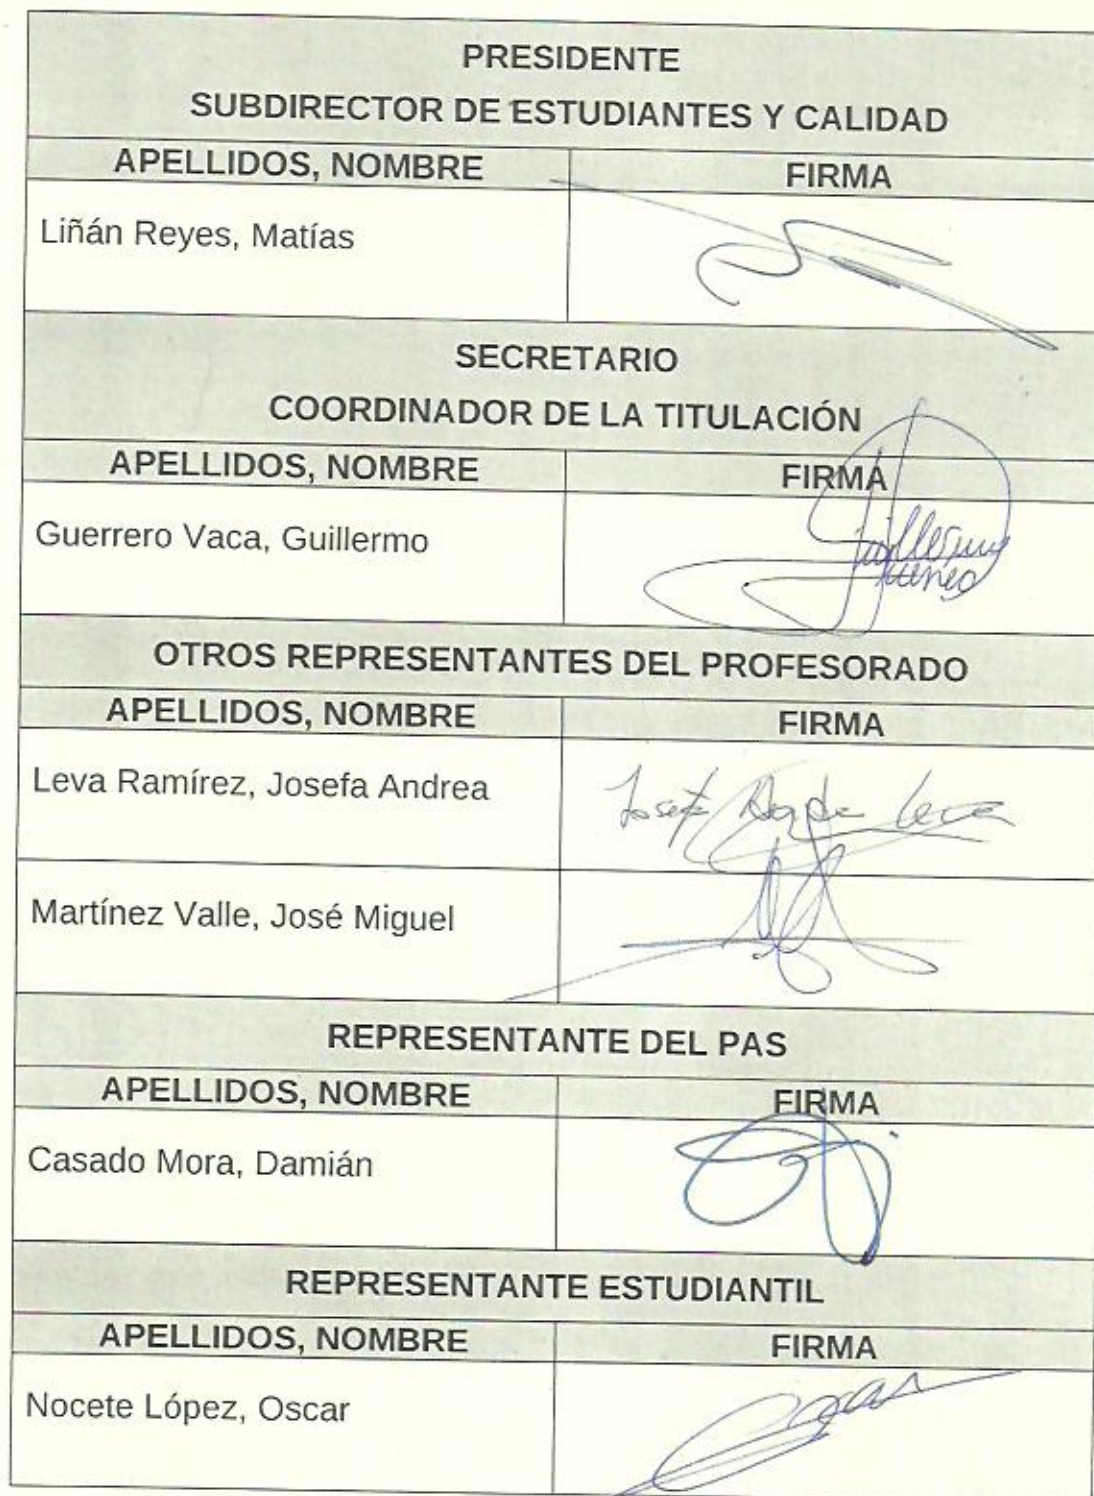 PRESIDENTE
SUBDIRECTOR DE ESTUDIANTES Y CALIDAD
APELLIDOS, NOMBRE FIRMA
Liñán Reyes, Matías
SECRETARIO
COORDINADOR DE LA TITULACIÓN
APELLIDOS, NOMBRE FIRMA
Guerrero Vaca, Guillermo
Guillermo
OTROS REPRESENTANTES DEL PROFESORADO
APELLIDOS, NOMBRE FIRMA
Leva Ramírez, Josefa Andrea Josefa Leva
Martínez Valle, José Miguel
REPRESENTANTE DEL PAS
APELLIDOS, NOMBRE FIRMA
Casado Mora, Damián
REPRESENTANTE ESTUDIANTIL
APELLIDOS, NOMBRE FIRMA
Nocete López, Oscar